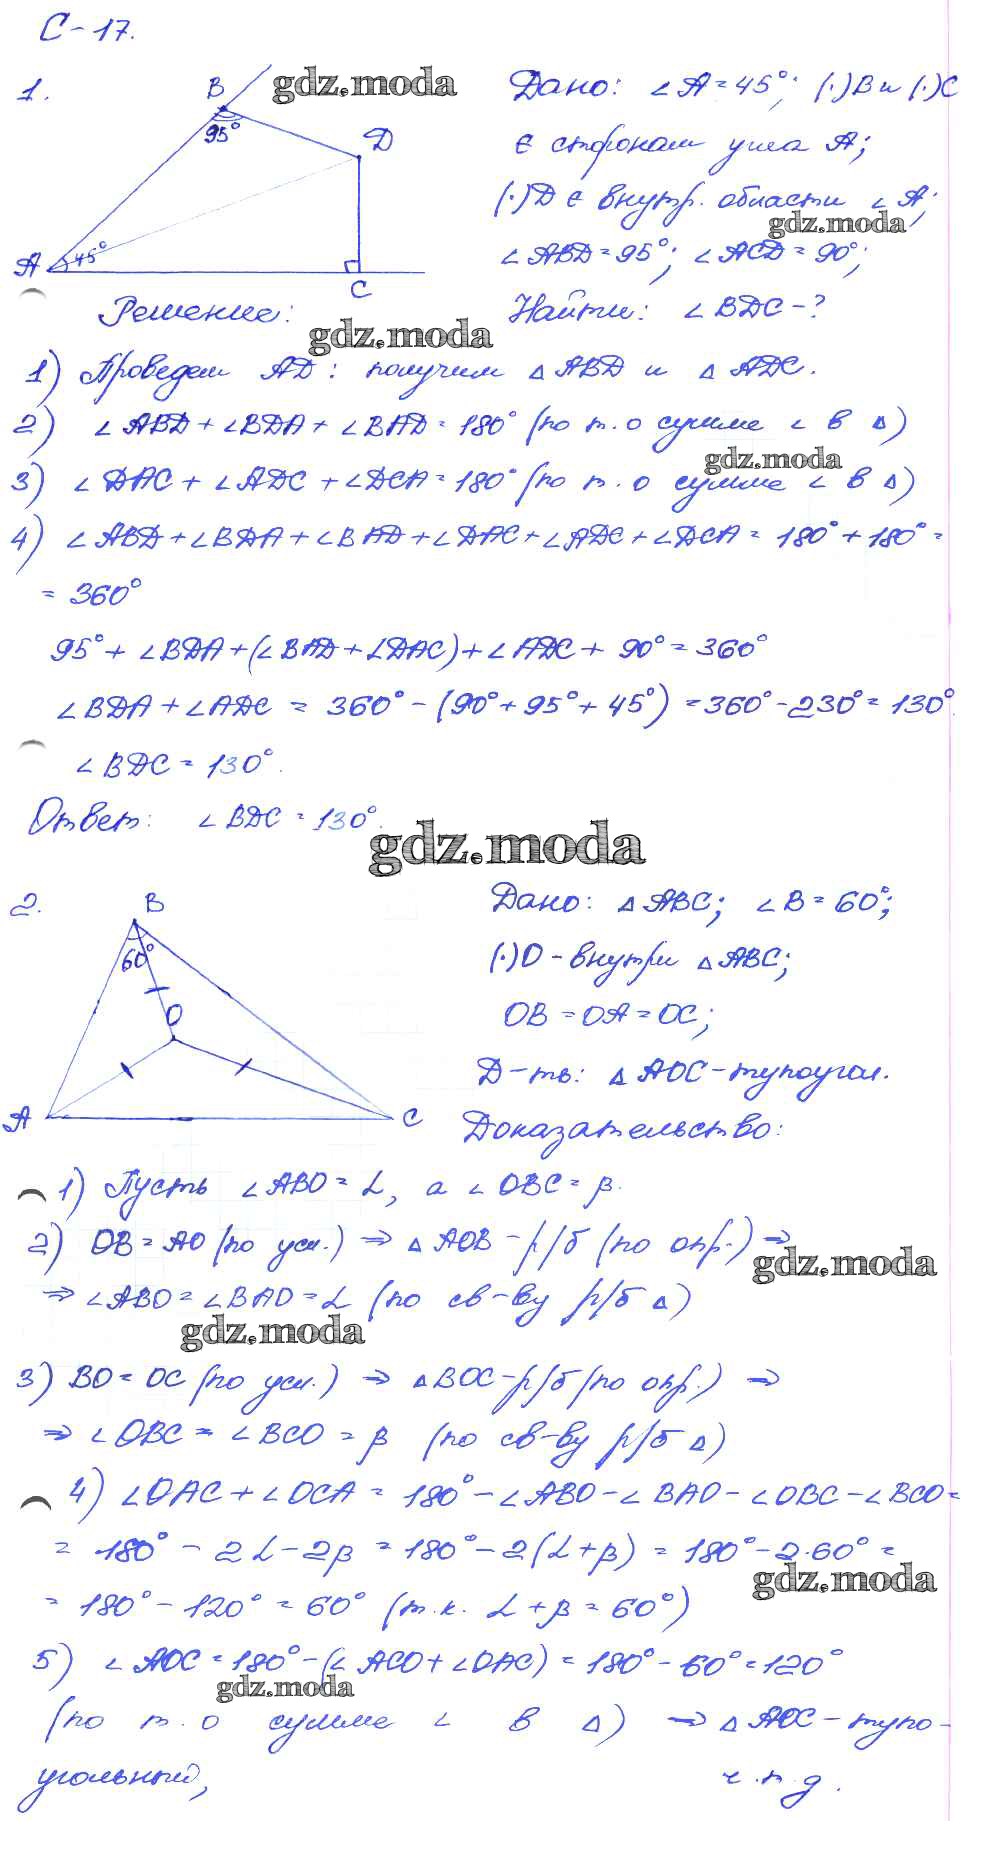 С-17.
1.
B
gdz.moda
95°
D
A
45°
C
Дано: ∠A=45°; (·)B и (·)C
∈ сторонам угла A;
(·)D ∈ внутр. области ∠A;
gdz.moda
∠ABD=95°; ∠ACD=90°;
Решение:
Найти: ∠BDC-?
gdz.moda
1) Проведем AD: получим △ABD и △ADC.
2) ∠ABD+∠BDA+∠BAD=180° (по т. о сумме ∠ в △)
gdz.moda
3) ∠DAC+∠ADC+∠DCA=180° (по т. о сумме ∠ в △)
4) ∠ABD+∠BDA+∠BAD+∠DAC+∠ADC+∠DCA=180°+180°=
=360°
95°+∠BDA+(∠BAD+∠DAC)+∠ADC+90°=360°
∠BDA+∠ADC=360°-(90°+95°+45°)=360°-230°=130°.
∠BDC=130°.
Ответ: ∠BDC=130°.
gdz.moda
2.
B
60°
O
A
C
Дано: △ABC; ∠B=60°;
(·)O-внутри △ABC;
OB=OA=OC;
Д-ть: △AOC-тупоугол.
Доказательство:
1) Пусть ∠ABO=α, а ∠OBC=β.
2) OB=AO (по усл.) ⇒ △AOB-р/б (по опр.) ⇒
gdz.moda
⇒ ∠ABO=∠BAO=α (по св-ву р/б △)
gdz.moda
3) BO=OC (по усл.) ⇒ △BOC-р/б (по опр.) ⇒
⇒ ∠OBC=∠BCO=β (по св-ву р/б △)
4) ∠OAC+∠OCA=180°-∠ABO-∠BAO-∠OBC-∠BCO=
=180°-2α-2β=180°-2(α+β)=180°-2·60°=
gdz.moda
=180°-120°=60° (т.к. α+β=60°)
5) ∠AOC=180°-(∠ACO+∠OAC)=180°-60°=120°
gdz.moda
(по т. о сумме ∠ в △) ⇒ △AOC-тупо-
угольный, ч.т.д.